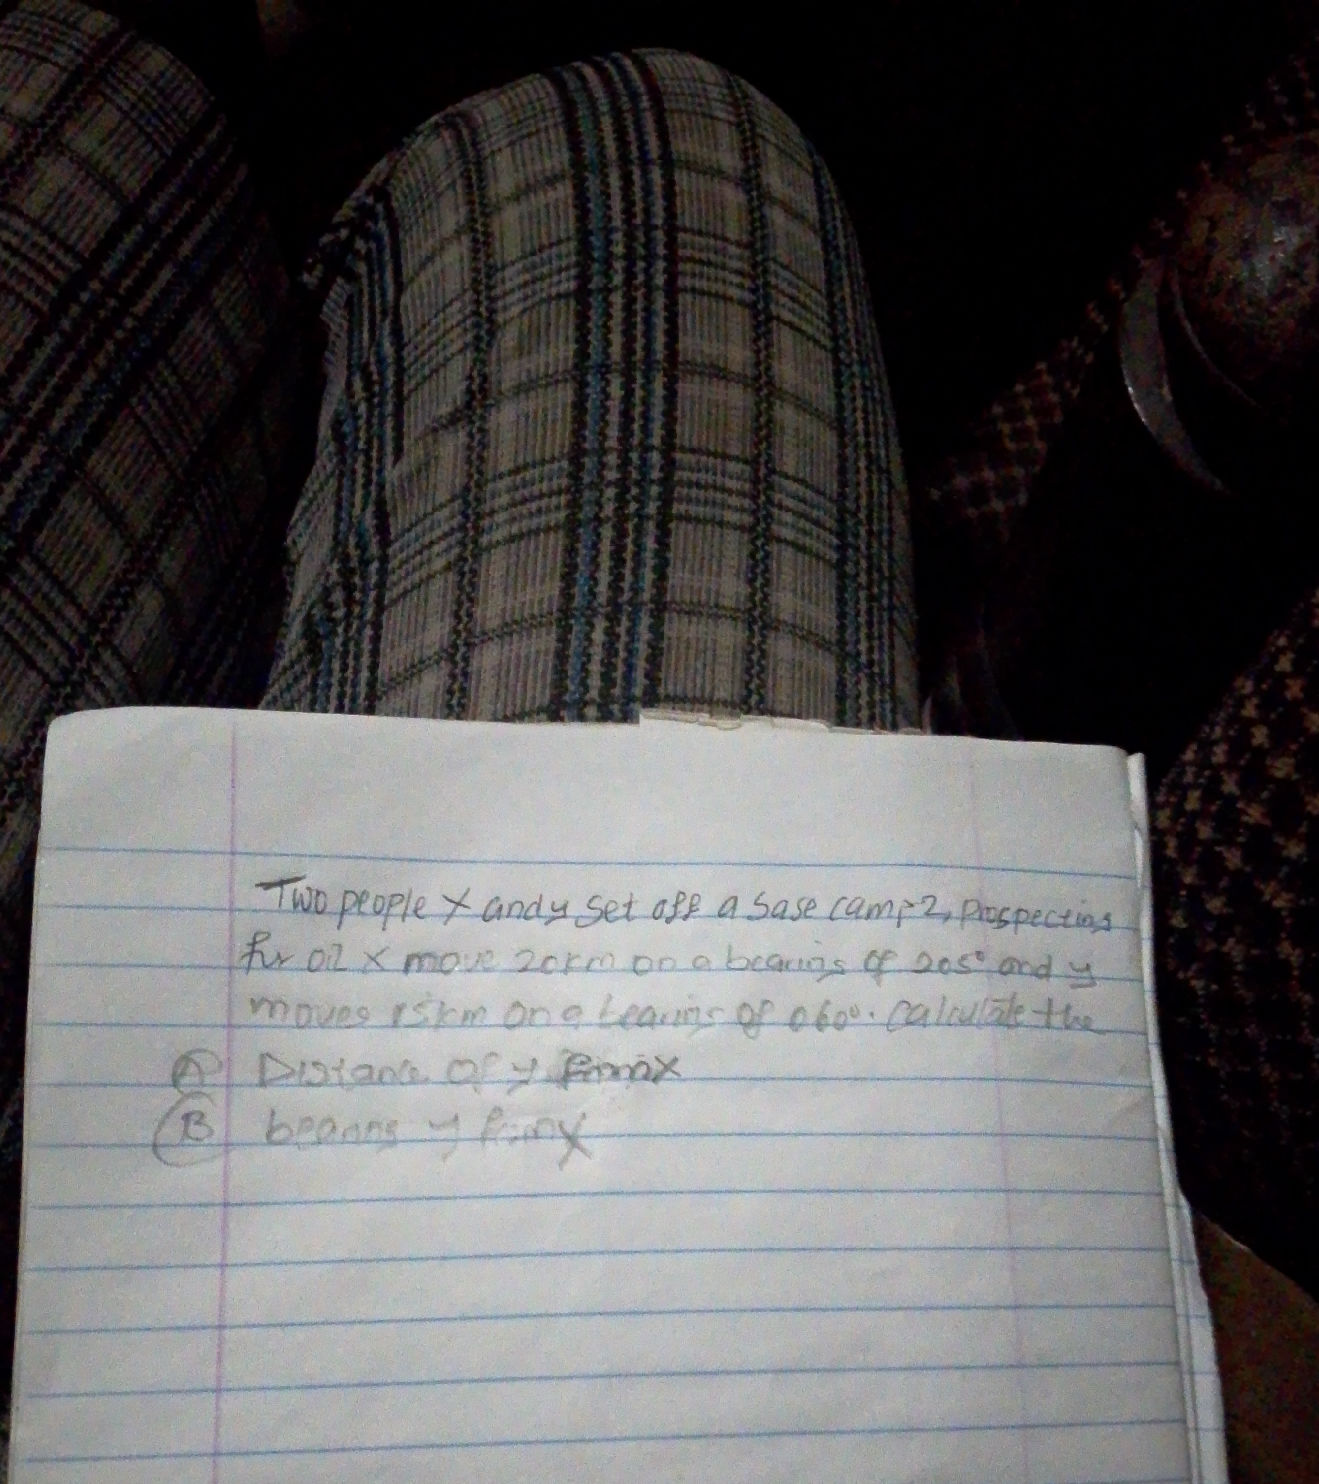 Two people X and y set off a base camp 2, prospecting
for oil X move 20km on a bearing of 205° and y
moves 15km on a bearing of 060°. Calculate the
A Distance of y from X
B bearing y from X